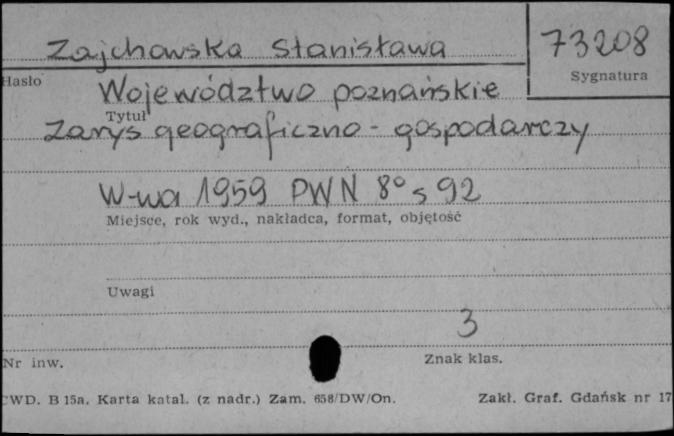 Zajchowska Stanisława
73208
Hasło
Sygnatura
Województwo poznańskie
Tytuł
Zarys geograficzno-gospodarczy
W-wa 1959 PWN 8° s 92
Miejsce, rok wyd., nakładca, format, objętość
Uwagi
3
Nr inw.
Znak klas.
WD. B 15a. Karta katal. (z nadr.) Zam. 658/DW/On.
Zakł. Graf. Gdańsk nr 17